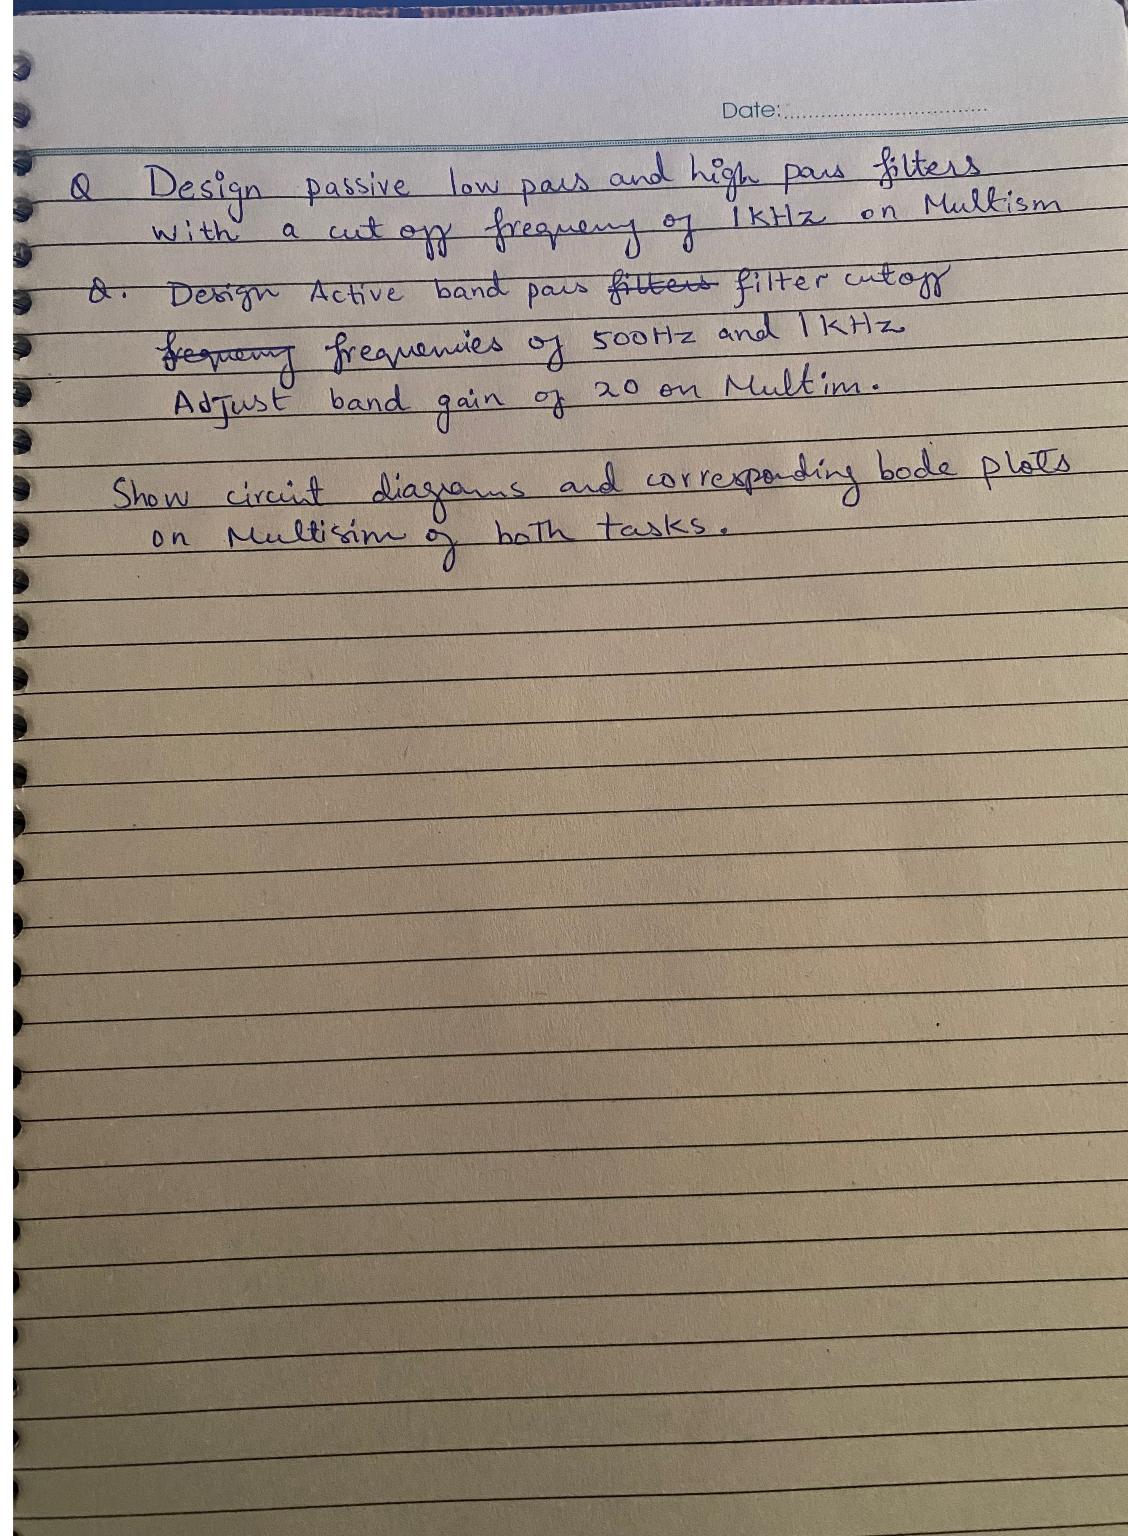 Date:
Q Design passive low pass and high pass filters
with a cut off frequency of 1KHz on Multism
Q. Design Active band pass filters filter cutoff
frequency frequencies of 500Hz and 1KHz
Adjust band gain of 20 on Multim.
Show circuit diagrams and corresponding bode plots
on Multisim of both tasks.